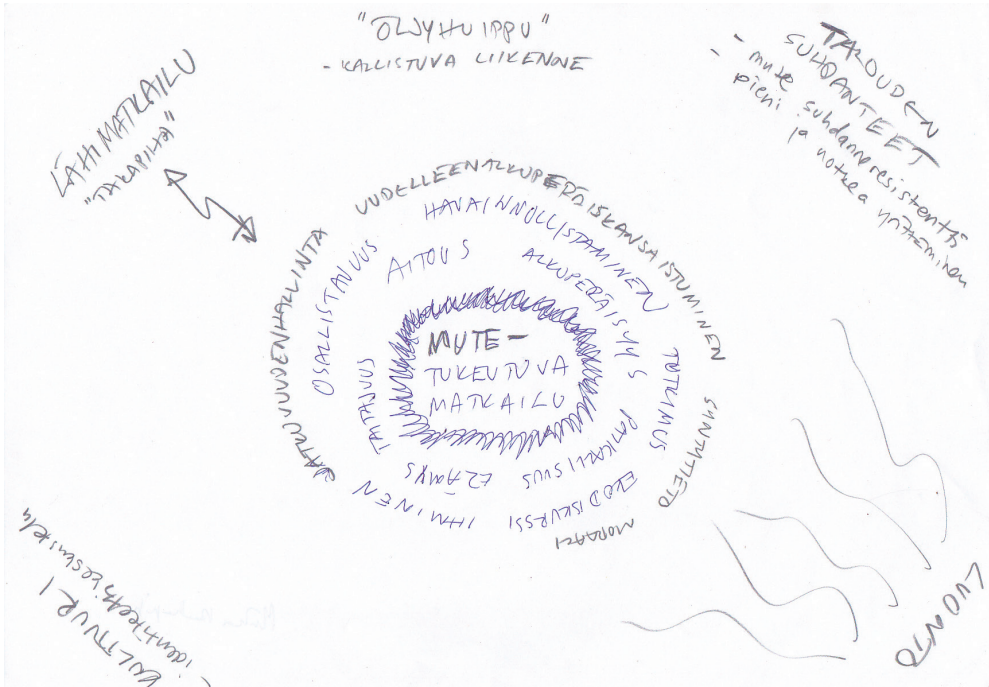 "ÖLJYHUIPPU"
- KALLISTUVA LIIKENNE
LÄHIMATKAILU
"TAKAPIHA"
TALOUDEN
SUHDANTEET
- mute suhdanneresistentti
- pieni ja notkea yrittäminen
UUDELLEENALKUPERÄISKANSAISTUMINEN
HAVAINNOLLISTAMINEN
JATKUVUUDENHALLINTA
OSALLISTAVUUS
AITOUS
ALKUPERÄISYYS
TAITAVUUS
MUTE-
TUKEUTUVA
MATKAILU
TUTKIMUS
PAIKALLISUUS
ELÄMYS
IHMINEN
EKODISKURSSI
MORAALI
LUONTO
KULTTUURI